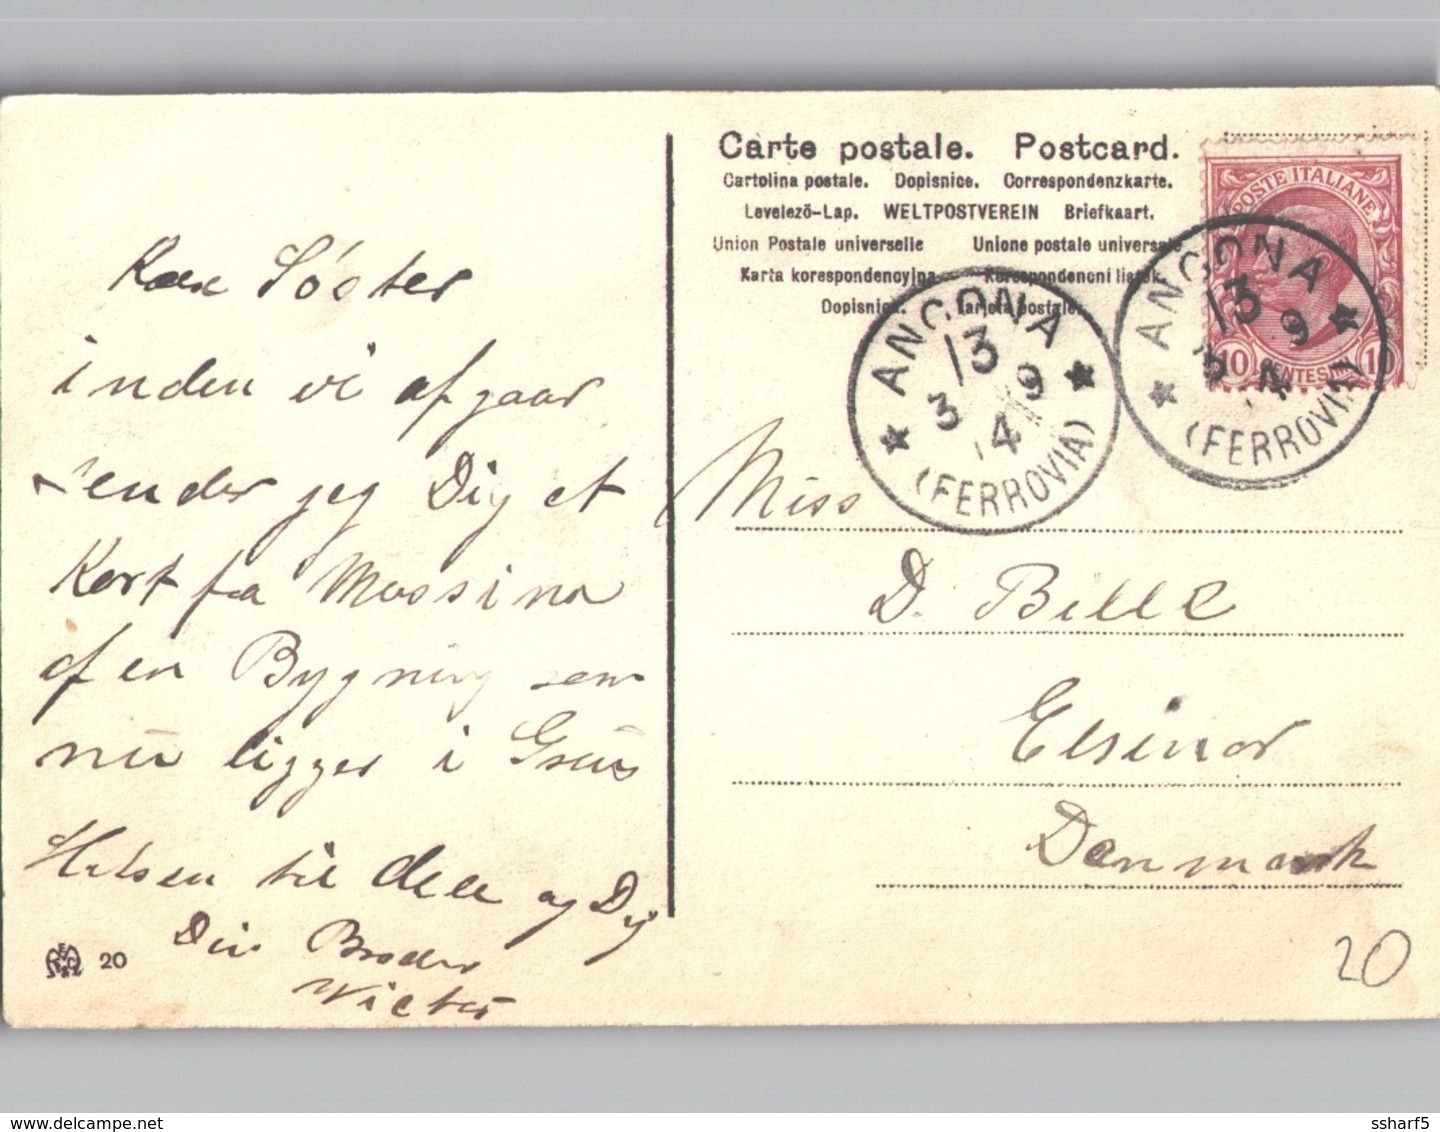 Kære Søster
inden vi afgaar
sender jeg Dig et
Kort fra Messina
af en Bygning som
nu ligger i Grus
Hilsen til alle og Dig
Din Broder
Victor
20
Carte postale. Postcard.
Cartolina postale. Dopisnice. Correspondenzkarte.
Levelezö-Lap. WELTPOSTVEREIN Briefkaart.
Union Postale universelle Unione postale universale
Karta korespondencyjna Korespondencni listek
Dopisnica. Tarjeta postale.
POSTE ITALIANE
10 CENTESIMI 10
ANCONA
13
3 9
14
(FERROVIA)
ANCONA
13
9
14
(FERROVIA)
Miss
D. Bille
Elsinor
Danmark
20
delcampe.net
ssharf5